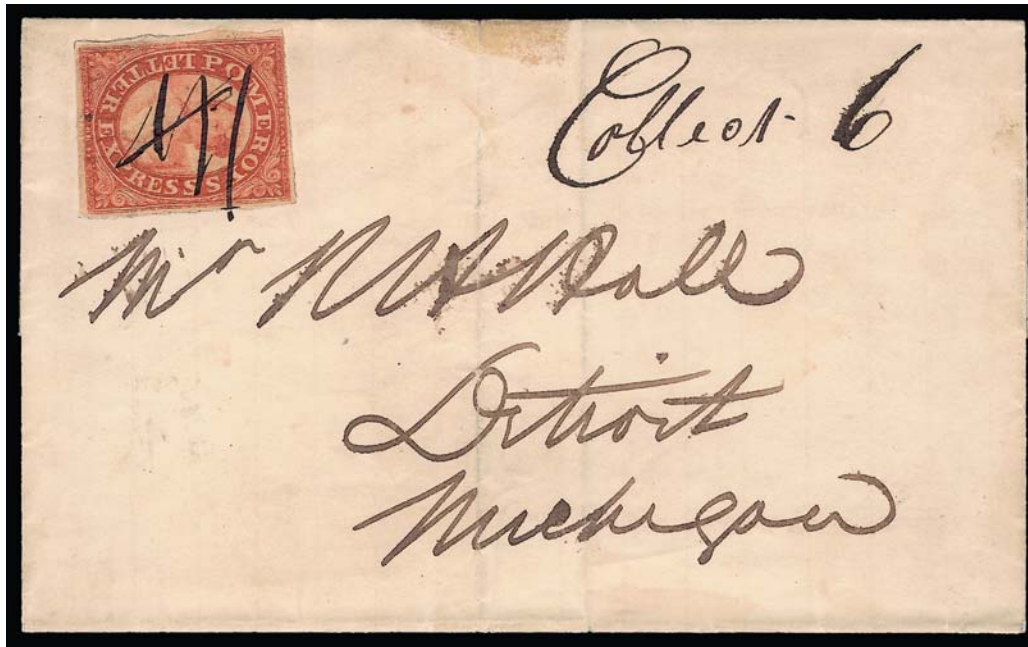 POMEROY'S LETTER EXPRESS
Collect 6
Mr Hall
Detroit
Michigan